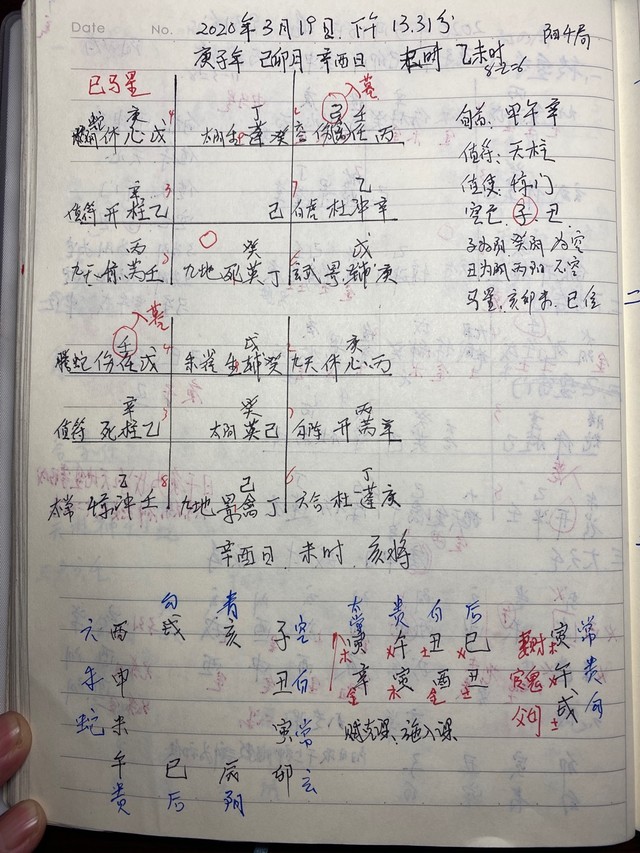 Date No. 2020年3月19日.下午 13.31分 阳4局
庚子年 己卯月 辛酉日 未时 乙未时
8-2=6
巳马星 入墓
旬首:甲午辛
值符:天柱
值使:惊门
空亡:子丑
子为阴 癸阴 为空
丑为阴 丙阳 不空
马星:亥卯未.巳位
丁 己 壬
太阴 蓬 癸
任 丙
辛 乙
值符 开 柱 乙 己 白虎 杜 冲 辛
丙 癸 戊
九天 惊 芮 壬 九地 死 英 丁 景 辅 庚
入墓
壬 戊
螣蛇 伤 任 戊 生 辅 癸 九天 休 心 丙
辛 癸 丙
值符 死 柱 乙 太阴 英 己 开 芮 辛
乙 己 丁
太常 惊 冲 壬 九地 景 禽 丁 六合 杜 蓬 庚
辛酉日.未时.亥将
勾 青 太常 贵 白 后
六 酉 戌 亥 子 空 寅 午 丑 巳 妻财 寅 常
朱 申 丑 白 辛 寅 酉 丑 官鬼 午 贵
蛇 未 寅 常 贼克课 父母 戌 勾
午 巳 辰 卯 玄
贵 后 阴